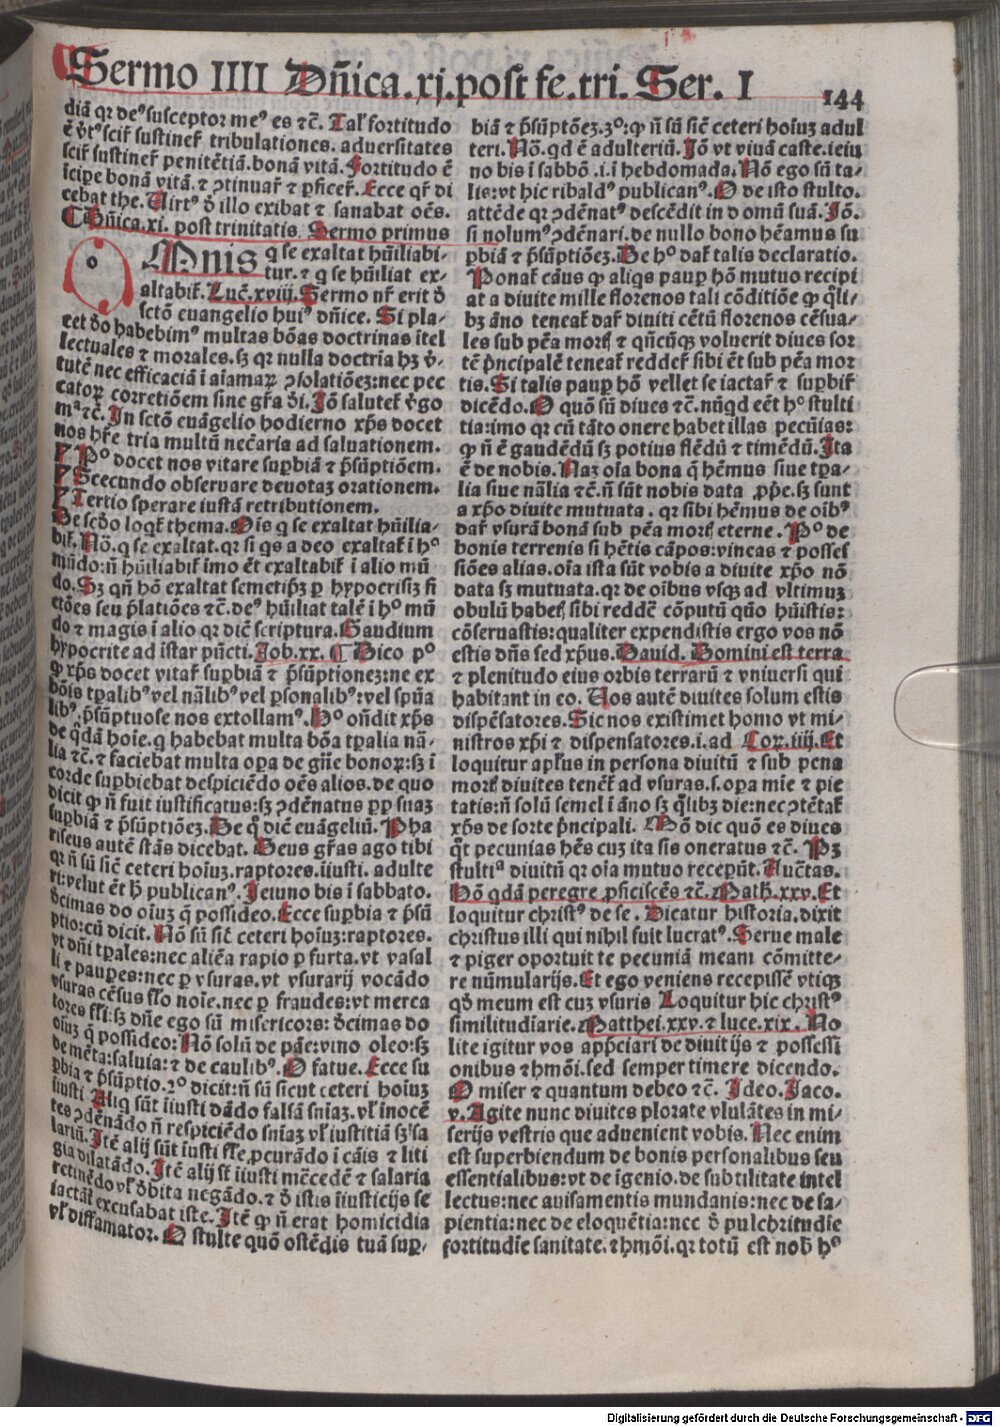 Sermo IIII Dn̄ica.xj.post fe.tri.Ser.I
144
diā qr deꝰ susceptor meꝰ es ⁊c̄. Tal̄ fortitudo
ē v̓tꝰ scil̄ sustinēr tribulationes. aduersitates
scil̄ sustinēr penitētiā.bonā vitā. Fortitudo ē
icipe bonā vitā.⁊ ɔtinuar̄ ⁊ ꝑficer̄. Ecce qr̄ di
cebat the. Uirtꝰ d̓ illo exibat ⁊ sanabat oēs.
¶ Dn̄ica.xi. post trinitatis. Sermo primus
o
OMnis q se exaltat hūiliabi-
tur.⁊ q se hūiliat ex-
altabit̄.Luc̄.xviij.Sermo nr̄ erit d̓
sctō euangelio huiꝰ dn̄ice. Si pla-
cet d̓o habebimꝰ multas bōas doctrinas itel
lectuales ⁊ morales.sꝫ qr nulla doctrīa hꝫ v̓-
tutē nec efficaciā i aīamaꝝ ɔsolatiōeꝫ:nec pec
catoꝝ correctiōem sine gr̄a d̓i. Iō saluteꝉ v̓go
mꝰ ⁊c̄. In sctō euāgelio hodierno xp̄s docet
nos hr̄e tria multū nec̄aria ad saluationem.
¶ Pº docet nos vitare sup̄biā ⁊ p̄sūptiōem.
¶ Secundo obseruare deuotaꝫ orationem.
¶ Tertio sperare iustā retributionem.
De scd̓o loqꝉ thema. Oīs q se exaltat hūilia-
bit̄. Nō.q se exaltat.qr si qs a deo exaltaꝉ i hº
mūdo:n̄ hūiliabiꝉ imo ēt exaltabiꝉ i alio mū
do. Sꝫ qn̄ hō exaltat semetip̄ꝫ ꝑ hypocrisiꝫ fi
ctōes seu p̄latiōes ⁊c̄.deꝰ hūiliat talē i hº mū
do ⁊ magis i alio qr dic̄ scriptura.Gaudium
hypocrite ad istar pūcti.Job.xx. ¶ Dico pº
ꝙ xp̄s docet vitar̄ sup̄biā ⁊ p̄sūptioneꝫ:ne ex
bōis tꝑalibꝰ vel nālibꝰ vel ꝑsonalibꝰ:vel spūa
libꝰ.p̄sūptuose nos extollamꝰ. Hº on̄dit xp̄s
de q̇dā hoīe.q habebat multa bōa tꝑalia nā-
lia ⁊c̄.⁊ faciebat multa oꝑa de gn̄e bonoꝝ:sꝫ i
corde sup̄biebat despiciēdo oēs alios.de quo
dicit ꝙ n̄ fuit iustificatus:sꝫ ɔdēnatus ꝓp̄ suaꝫ
sup̄biā ⁊ p̄sūptiōeꝫ.De q̊ dic̄ euāgeliū. Pha
riseus autē stās dicebat. Deus gr̄as ago tibi
qr n̄ sū sic̄ ceteri hoīuꝫ.raptores.iiusti. adulte
ri:velut ēt h̄ publicanꝰ. Ieiuno bis i sabbato.
d̓cimas do oīuꝫ q̄ possideo.Ecce sup̄bia ⁊ p̄sū
ptio:cū dicit. Nō sū sic̄ ceteri hoīuꝫ:raptores.
vt dn̄i tꝑales:nec aliēa rapio ꝑ furta.vt vasal
li ⁊ pauꝑes:nec ꝑ vsuras.vt vsurarij vocādo
vsuras cēsus fl̄o noīe.nec ꝑ fraudes:vt merca
tores fl̄i:sꝫ dn̄e ego sū misericors: d̓cimas do
oīuꝫ q̄ possideo: Nō solū de pāe:vino oleo:sꝫ
de mēta:saluia:⁊ de caulibꝰ. O fatue. Ecce su
ꝑbia ⁊ p̄sūptio.2º dicit:n̄ sū sicut ceteri hoīuꝫ
iiusti Aliq sūt iiusti dādo falsā snīaꝫ.vꝉ inocē
tes ɔdēnādo n̄ respiciēdo snīaꝫ vꝉ iustitiā sꝫ sa
lariū. Itē alij sūt iusti fl̄e,ꝓcurādo i cāis ⁊ liti
gia dilatādo. Itē alij sꝉ iiusti mēcedē ⁊ salaria
retinēdo vꝉ d̓bita negādo.⁊ d̓ istis iiusticijs se
iactāt excusabat iste. Itē ꝙ n̄ erat homicidia
vꝉ diffamator. O stulte quō ostēdis tuā suꝑ-
biā ⁊ p̄sūptōeꝫ.3º:ꝙ n̄ sū sic̄ ceteri hoīuꝫ adul
teri. Nō.qd ē adulteriū. Iō vt viuā caste.ieiu
no bis i sabbō .i.i hebdomada. Nō ego sū ta-
lis:vt hic ribaldꝰ publicanꝰ. O de isto stulto.
attēde qr ɔdēnatꝰ descēdit in domū suā. Iō.
si nolumꝰ ɔdēnari.de nullo bono hēamus su
ꝑbiā ⁊ p̄sūptiōeꝫ. De hº daꝉ talis declaratio.
Ponaꝉ cāus ꝙ aliqs pauꝑ hō mutuo recipi
at a diuite mille florenos tali cōditiōe ꝙ q̄li-
bꝫ āno teneaꝉ dar̄ diuiti cētū florenos cēsua-
les sub pēa morꝭ ⁊ qn̄cūqꝫ voluerit diues sor
tē p̄ncipalē teneaꝉ redder̄ sibi ēt sub pēa mor
tis. Si talis pauꝑ hō vellet se iactar̄ ⁊ suꝑbir̄
dicēdo. O quō sū diues ⁊c̄.nūqd eēt hº stulti
tia:imo qr cū tāto onere habet illas pecūias:
ꝙ n̄ ē gaudēdū sꝫ potius flēdū ⁊ timēdū. Ita
ē de nobis. Naꝫ oīa bona q̄ hēmus siue tꝑa-
lia siue nālia ⁊c̄.n̄ sūt nobis data ꝓp̄e.sꝫ sunt
a xp̄o diuite mutuata . qr sibi hēmus de oībꝰ
dar̄ vsurā bonā sub pēa morꝭ eterne. Pº de
bonis terrenis si hētis cāpos:vineas ⁊ posses
siōes alias.oīa ista sūt vobis a diuite xp̄o nō
data sꝫ mutuata.qr de oībus vsqꝫ ad vltimuꝫ
obulū habeꝭ sibi reddē cōputū quō hūistis:
cōseruastis:qualiter expendistis ergo vos nō
estis dn̄s sed xp̄us. Dauid. Domini est terra
⁊ plenitudo eius orbis terrarū ⁊ vniuersi qui
habitant in eo. Uos autē diuites solum estis
dispēsatores. Sic nos existimet homo vt mi-
nistros xp̄i ⁊ dispensatores.i.ad Coꝝ.iiij. Et
loquitur apl̄us in persona diuitū ⁊ sub pena
morꝭ diuites tenēꝉ ad vsuras.s.oꝑa mie ⁊ pie
tatis:n̄ solū semel i āno sꝫ q̄libꝫ die:nec ɔtētaꝉ
xp̄s de sorte p̄ncipali. Mō dic quō es diues
q̄t pecunias hēs cuꝫ ita sis oneratus ⁊c̄. Pꝫ
stultiᵃ diuitū qr oīa mutuo receꝑūt. Auc̄tas.
Hō qdā peregre ꝓficiscēs ⁊c̄. Math.xxv. Et
loquitur christꝰ de se. Dicatur historia.dixit
christus illi qui nihil fuit lucratꝰ. Serue male
⁊ piger oportuit te pecuniā meam cōmitte-
re nūmularijs. Et ego veniens recepissē vtiqꝫ
qd̓ meum est cuꝫ vsuris Loquitur hic christꝰ
similitudīarie. Matthei.xxv.⁊ luce.xix. No
lite igitur vos app̄ciari de diuitijs ⁊ possessi
onibus ⁊hmōi.sed semper timere dicendo.
O miser ⁊ quantum debeo ⁊c̄. Ideo. Iaco.
v. Agite nunc diuites plorate vlulātes in mi-
serijs vestris que aduenient vobis. Nec enim
est superbiendum de bonis personalibus seu
essentialibus:vt de īgenio.de subtilitate intel
lectus:nec auisamentis mundanis:nec de sa-
pientia:nec de eloquētia:nec d̓ pulchritudīe
fortitudīe sanitate.⁊hmōi.qr totū est nob̄ hº
Digitalisierung gefördert durch die Deutsche Forschungsgemeinschaft - DFG